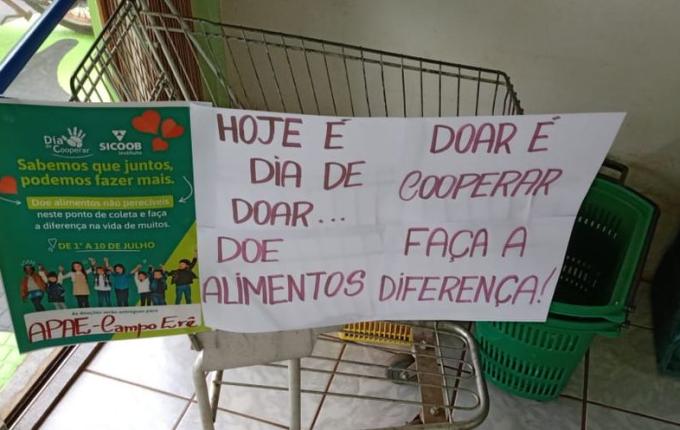 Dia de
Cooperar
SICOOB
Instituto
Sabemos que juntos,
podemos fazer mais.
Doe alimentos não perecíveis
neste ponto de coleta e faça
a diferença na vida de muitos.
DE 1º A 10 DE JULHO
As doações serão entregues para
APAE-Campo Erê
HOJE É
DIA DE
DOAR...
DOE
ALIMENTOS
DOAR É
COOPERAR
FAÇA A
DIFERENÇA!